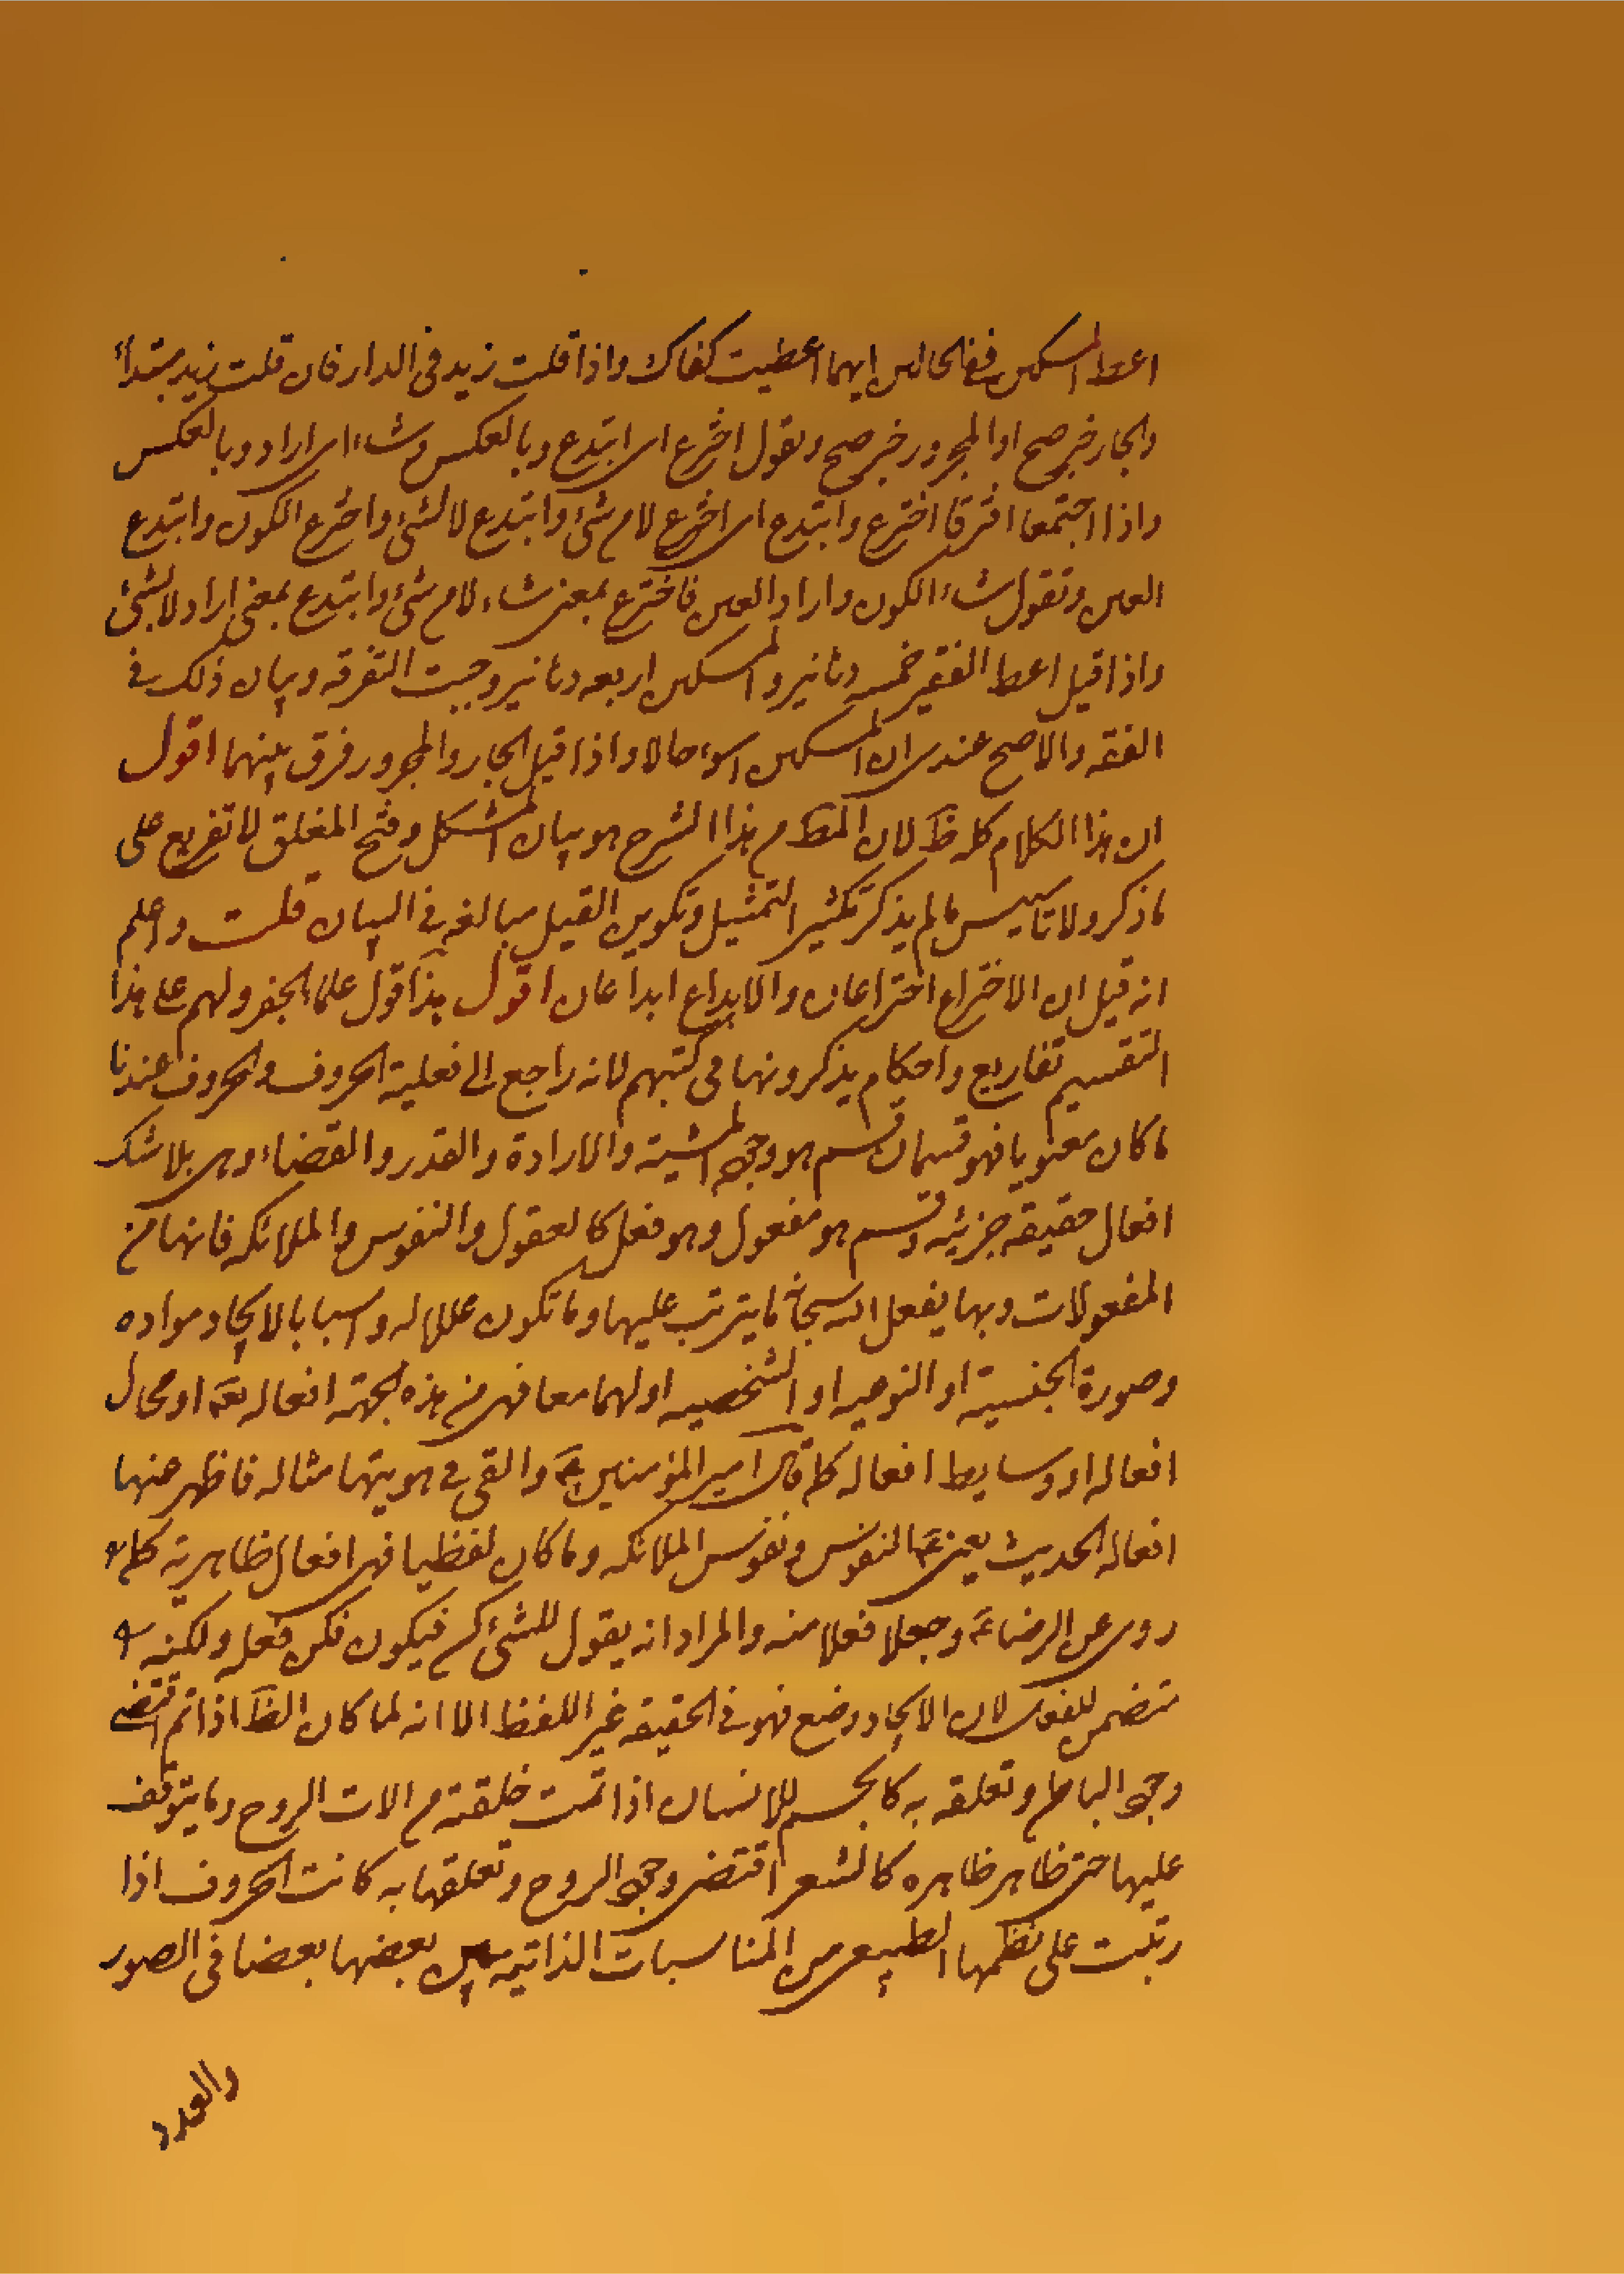 اعط المسكين ففي الحالين ايهما اعطيت كفاك واذا قلت زيد في الدار فان قلت زيد مبتدأ
والجار خبر صح او المجرور خبر صح وتقول اخترع اى ابتدع وبالعكس وشاء اى اراد وبالعكس
واذا اجتمعا افترقا اخترع وابتدع اى اخترع لا من شئ وابتدع لا لشئ واخترع الكون وابتدع
العين وتقول شاء الكون واراد العين فاخترع بمعنى شاء لا من شئ وابتدع بمعنى اراد لا لشئ
واذا قيل اعط الفقير خمسه دنانير والمسكين اربعه دنانير وجبت التفرقه وبيان ذلك في
الفقه والاصح عندى ان المسكين اسوء حالا واذا قيل الجار والمجرور فرق بينهما اقول
ان هذا الكلام كله ظ لان المط من هذا الشرح هو بيان المشكل وفتح المغلق لا تفريع على
ما ذكر ولا تاسيس ما لم يذكر تكثير التمثيل وتكوير القيل مبالغه في البيان قلت واعلم
انه قيل ان الاختراع اختراعان والابداع ابداعان اقول هذا قول علماء الجفر ولهم على هذا
التقسيم تفاريع واحكام يذكرونها في كتبهم لانه راجع الى فعلية الحروف والحروف عندنا
ما كان معنويا فهو قسمان قسم هو وجوه المشية والارادة والقدر والقضاء وهى بلا شك
افعال حقيقه جزئيه وقسم هو مفعول وهو فعل كالعقول والنفوس والملائكه فانها من
المفعولات وبها يفعل الله سبحانه ما يترتب عليها وما تكون عللا له واسبابا لايجاد مواده
وصورة الجنسية او النوعيه او الشخصيه او لهما معا فهى من هذه الجهة افعاله تعه او محال
افعاله او وسايط افعاله كما قال امير المؤمنين ع والقى في هويتها مثاله فاظهر عنها
افعاله الحديث يعنى ع النفوس ونفوس الملائكه وما كان لفظيا فهى افعال ظاهرية كما
روى عن الرضا ع وجعلا فعلا منه والمراد انه يقول للشئ كن فيكون فكن فعله ولكنه
متضمن للفعل لان الايجاد وضع فهو في الحقيقه غير اللفظ الا انه لما كان الظ اذا تم اقتضى
وجود الباطن وتعلقه به كالجسم للانسان اذا تمت خلقته من الات الروح وما يتوقف
عليها حتى ظاهر ظاهره كالشعر اقتضى وجود الروح وتعلقها به كانت الحروف اذا
رتبت على نظمها الطبيعى من المناسبات الذاتيه بين بعضها بعضا في الصور
والعدد